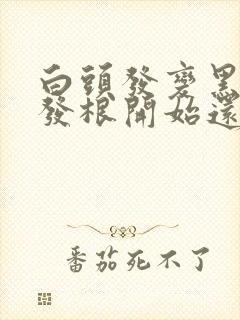 白頭發變黑
發根開始還
番茄死不了